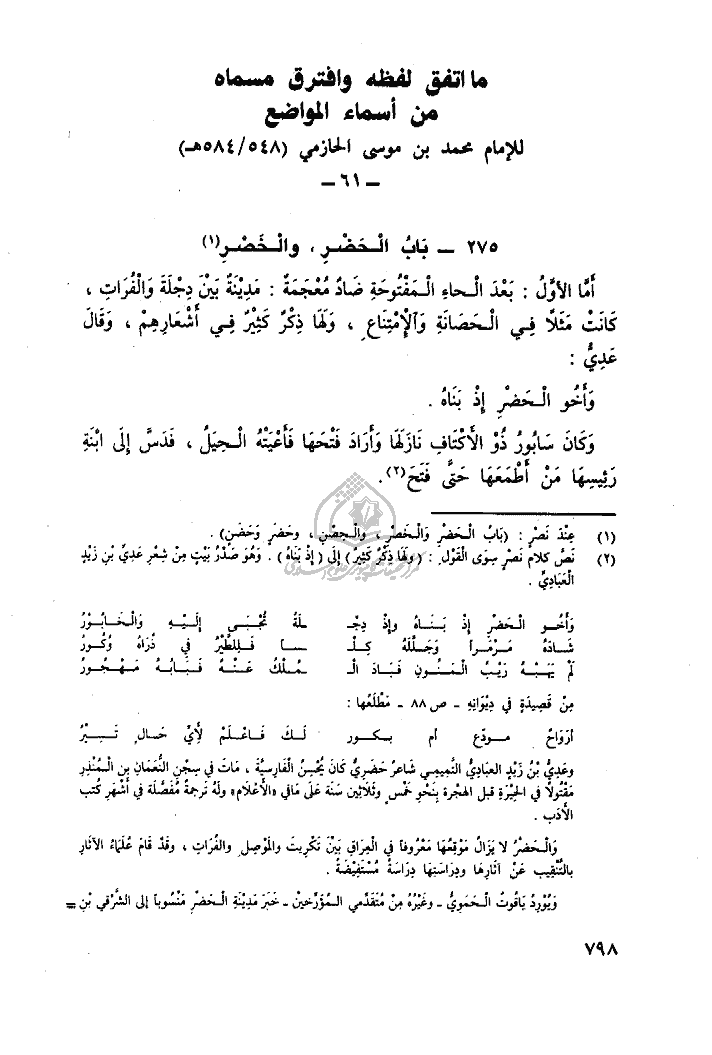 ما اتفق لفظه وافترق مسماه
من أسماء المواضع
للإمام محمد بن موسى الحازمي (٥٤٨/٥٨٤هـ)
– ٦١ –
٢٧٥ – بَابُ الْـحَضْرِ ، والْـخَضْـرِ(١)
أَمَّا الأَوَّلُ : بَعْدَ الْـحاءِ الْـمَفْتُوحَةِ ضَادٌ مُعْجَمَةٌ : مَدِيْنَةٌ بَيْنَ دِجْلَةَ وَالْفُرَاتِ ،
كَانَتْ مَثَلًا فِـي الْـحَصَانَةِ وَالْإِمْتِنَاعِ ، وَلَهَا ذِكْرٌ كَثِيْرٌ فِـي أَشْعَارِهِمْ ، وَقَالَ
عَدِيٌّ :
وَأَخُو الْـحَضْرِ إِذْ بَنَاهُ .
وَكَانَ سَابُورُ ذُوْ الْأَكْتَافِ نَازَلَهَا وَأَرَادَ فَتْحَهَا فَأَعْيَتْهُ الْـحِيَلُ ، فَدَسَّ إِلَى ابْنَةِ
رَئِيْسِهَا مَنْ أَطْمَعَهَا حَتَّى فَتَحَ(٢).
(١) عِنْدَ نَصْرٍ : (بَابُ الْـحَضْرِ وَالْـخَضْرِ ، والْـحِصْنِ ، وحَضَرٍ وَحَضَنٍ) .
(٢) نَصُّ كَلَامِ نَصْرٍ سِوَى الْقَوْلِ : (وَلَهَا ذِكْرٌ كَثِيْرٌ) إِلَى (إِذْ بَنَاهُ) . وَهُوَ صَدْرُ بَيْتٍ مِنْ شِعْرِ عَدِيِّ بْنِ زَيْدٍ
الْعِبَادِيِّ .
وَأَخُـو الْـحَضْرِ إِذْ بَـنَـاهُ وَإِذْ دِجْـ ـلَةُ تُجْـبَـى إِلَـيْـهِ وَالْـخَابُـوْرُ
شَـادَهُ مَـرْمَـراً وَجَـلَّلَهُ كِلْـ ـساً فَـلِلطَّيْرُ فِي ذُرَاهُ وُكُـورُ
لَمْ يَهَـبْـهُ رَيْبُ الْـمَنُـونِ فَبَـادَ الْـ ـمُـلْكُ عَنْـهُ فَبَابُهُ مَـهْـجُورُ
مِنْ قَصِيْدَةٍ فِي دِيْوَانِهِ – ص٨٨ – مَطْلَعُهَا :
أَرَوَاحٌ مـودّع أم بـكـور لَـكَ فَـاعْـلَـمْ لِأَيِّ حَـالٍ تَـصِـيْـرُ
وعَدِيُّ بْنُ زَيْدٍ العِبَادِيُّ التَّمِيمي شَاعرٌ حَضَرِيٌّ كَانَ يُحْسِنُ الْفَارِسِيَّةَ ، مَاتَ فِي سِجْنِ النُّعْمَانِ بنِ الْـمُنْذِرِ
مَقْتُولًا فِي الحِيْرَةِ قبل الهجْرة بِنَحْوِ خَمْسٍ وثَلَاثِين سَنَة عَلَى مَافي «الْأَعْلَامِ» ولَهُ تَرْجَمَةٌ مُفَصَّلَة فِي أَشْهَرِ كُتب
الأدَبِ .
وَالْـحَضْرُ لَا يَزَالُ مَوْقِعُهَا مَعْرُوفاً فِي العِرَاقِ بَيْنَ تَكْرِيت والْمَوصِلِ والْفُرَاتِ ، وقَدْ قَامَ عُلَمَاءُ الْآثَارِ
بِالتَّنْقِيبِ عَنْ آثَارِهَا ودِرَاسَتِهَا دِرَاسَةً مُسْتَفِيْضَةً .
وَيُوْرِدُ يَاقوتُ الْـحَمَوِيُّ – وَغَيْرُهُ مِنْ مُتَقَدِّمي الـمُؤَرِّخين – خَبَرَ مَدِيْنَةِ الْـحَضْرِ مَنْسُوباً إلى الشَّرْقي بْنِ =
٧٩٨